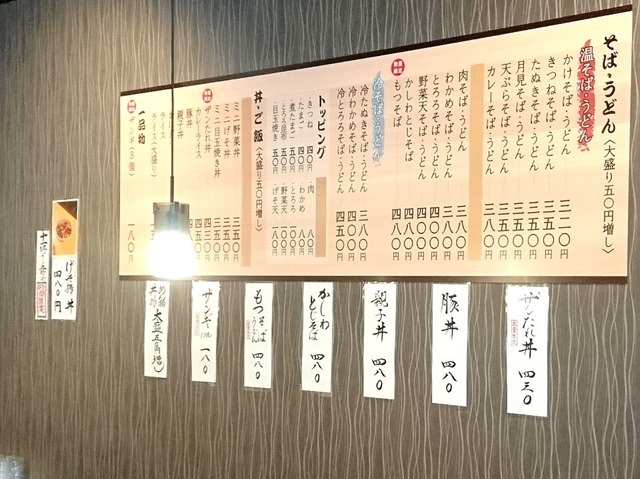 そば・うどん〈大盛り五〇円増し〉
温そば・うどん
かけそば・うどん 三二〇円
きつねそば・うどん 三五〇円
たぬきそば・うどん 三五〇円
月見そば・うどん 三五〇円
天ぷらそば・うどん 三五〇円
カレーそば・うどん 三八〇円
肉そば・うどん 三八〇円
わかめそば・うどん 三八〇円
とろろそば・うどん 四〇〇円
野菜天そば・うどん 四〇〇円
かしわとじそば 四八〇円
もつそば 四八〇円
冷そば・うどん
冷たぬきそば・うどん 三八〇円
冷わかめそば・うどん 四〇〇円
冷とろろそば・うどん 四五〇円
トッピング
きつね 四〇円
たまご 五〇円
煮たまご 五〇円
とろろ昆布 五〇円
目玉焼き 五〇円
肉
わかめ 八〇円
とろろ 一〇〇円
野菜天 一〇〇円
げそ天 一八〇円
丼・ご飯〈大盛り五〇円増し〉
ミニ野菜丼
ミニげそ丼
ミニ目玉焼き丼
ザンたれ丼
カレーライス
豚丼
親子丼
ライス
ライス(大盛り)
一品物
ザンギ(3個) 一八〇
ザンたれ丼 四三〇
豚丼 四八〇
親子丼 四八〇
かしわとじそば 四八〇
もつそばうどん 四八〇
ザンギ 一八〇
大盛
げそ丼 四八〇円